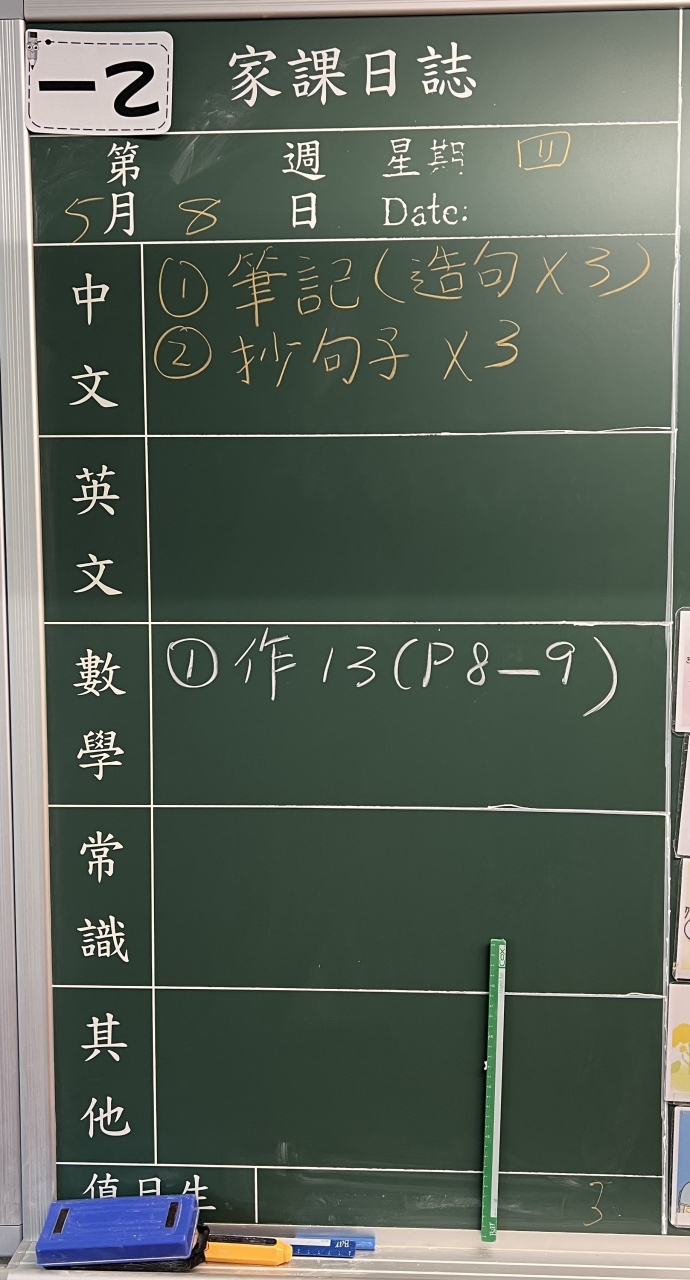 一乙
家課日誌
第 週 星期 四
5月 8 日 Date:
中文
① 筆記(造句×3)
② 抄句子 ×3
英文
數學
① 作13(P8-9)
常識
其他
值日生 3